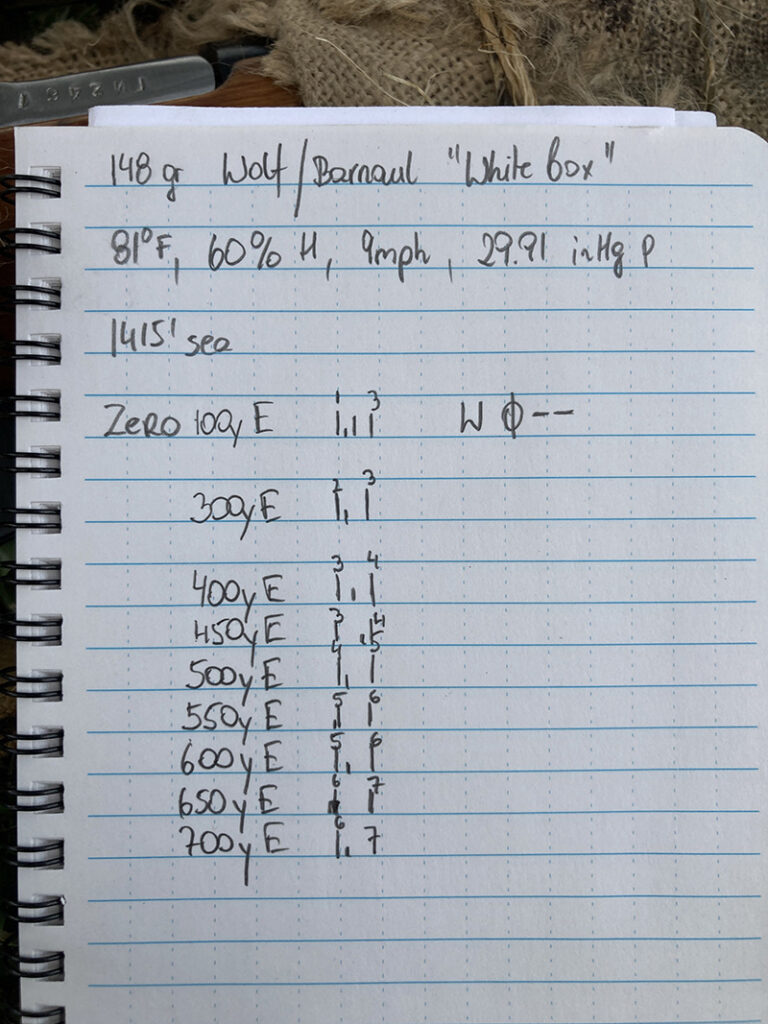 148 gr Wolf/Barnaul "White box"
81°F, 60% H, 9mph, 29.91 inHg P
1415' sea
ZERO 100y E 1 3 W Ø--
300y E 2 3
400y E 3 4
450y E 3 4
500y E 4 5
550y E 5 6
600y E 5 6
650y E 6 7
700y E 6 7